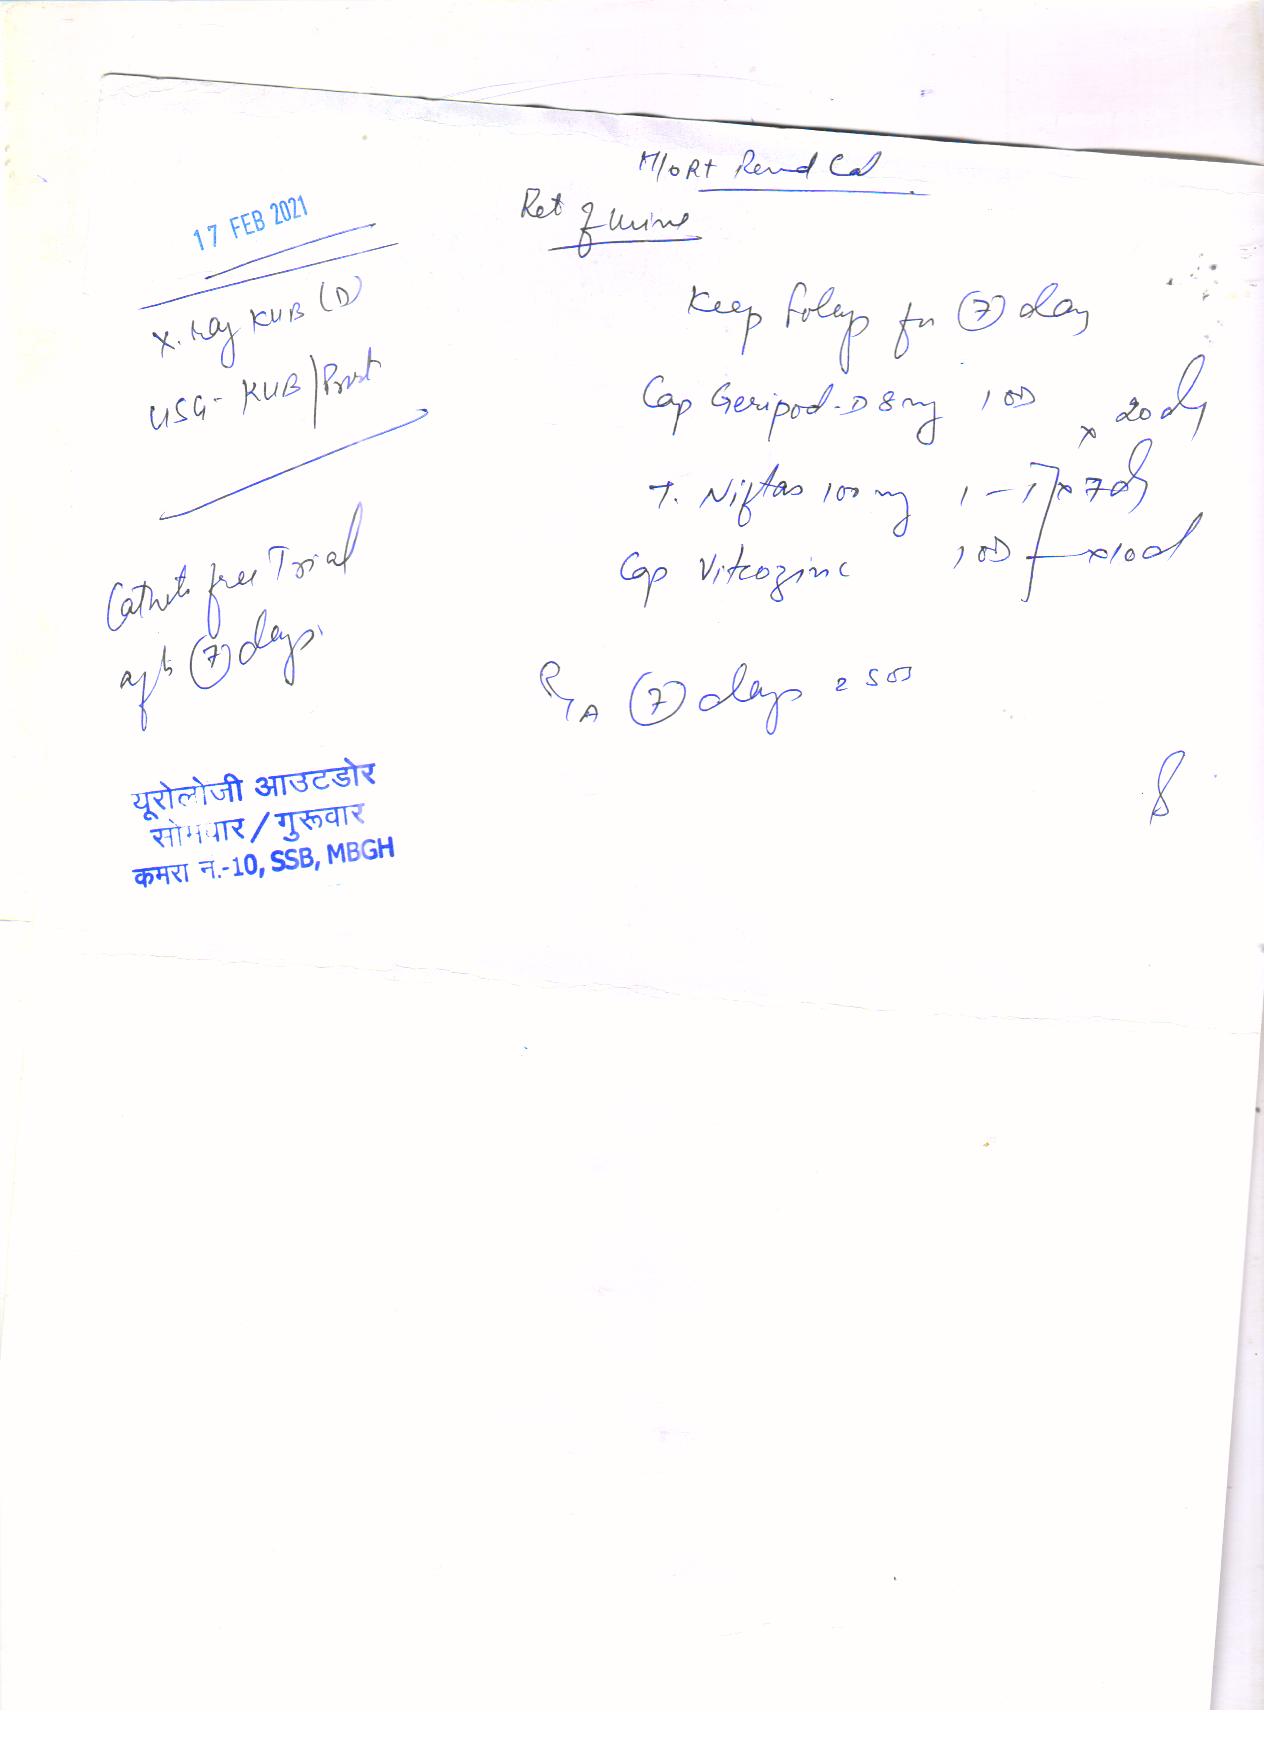 17 FEB 2021
X. Ray KUB (D)
USG - KUB/Prost
free Trial
(7) days.
यूरोलोजी आउटडोर
सोमवार / गुरूवार
कमरा न.-10, SSB, MBGH
H/O Rt Renal Cal
Ret of urine
Keep Foleys for (7) day
Cap Geripod-D 8 mg 1 OD x 20 d
T. Niftas 100 mg 1 - 1 x 7 d
Cap Vitcozinc 1 OD x 10 d
(7) days